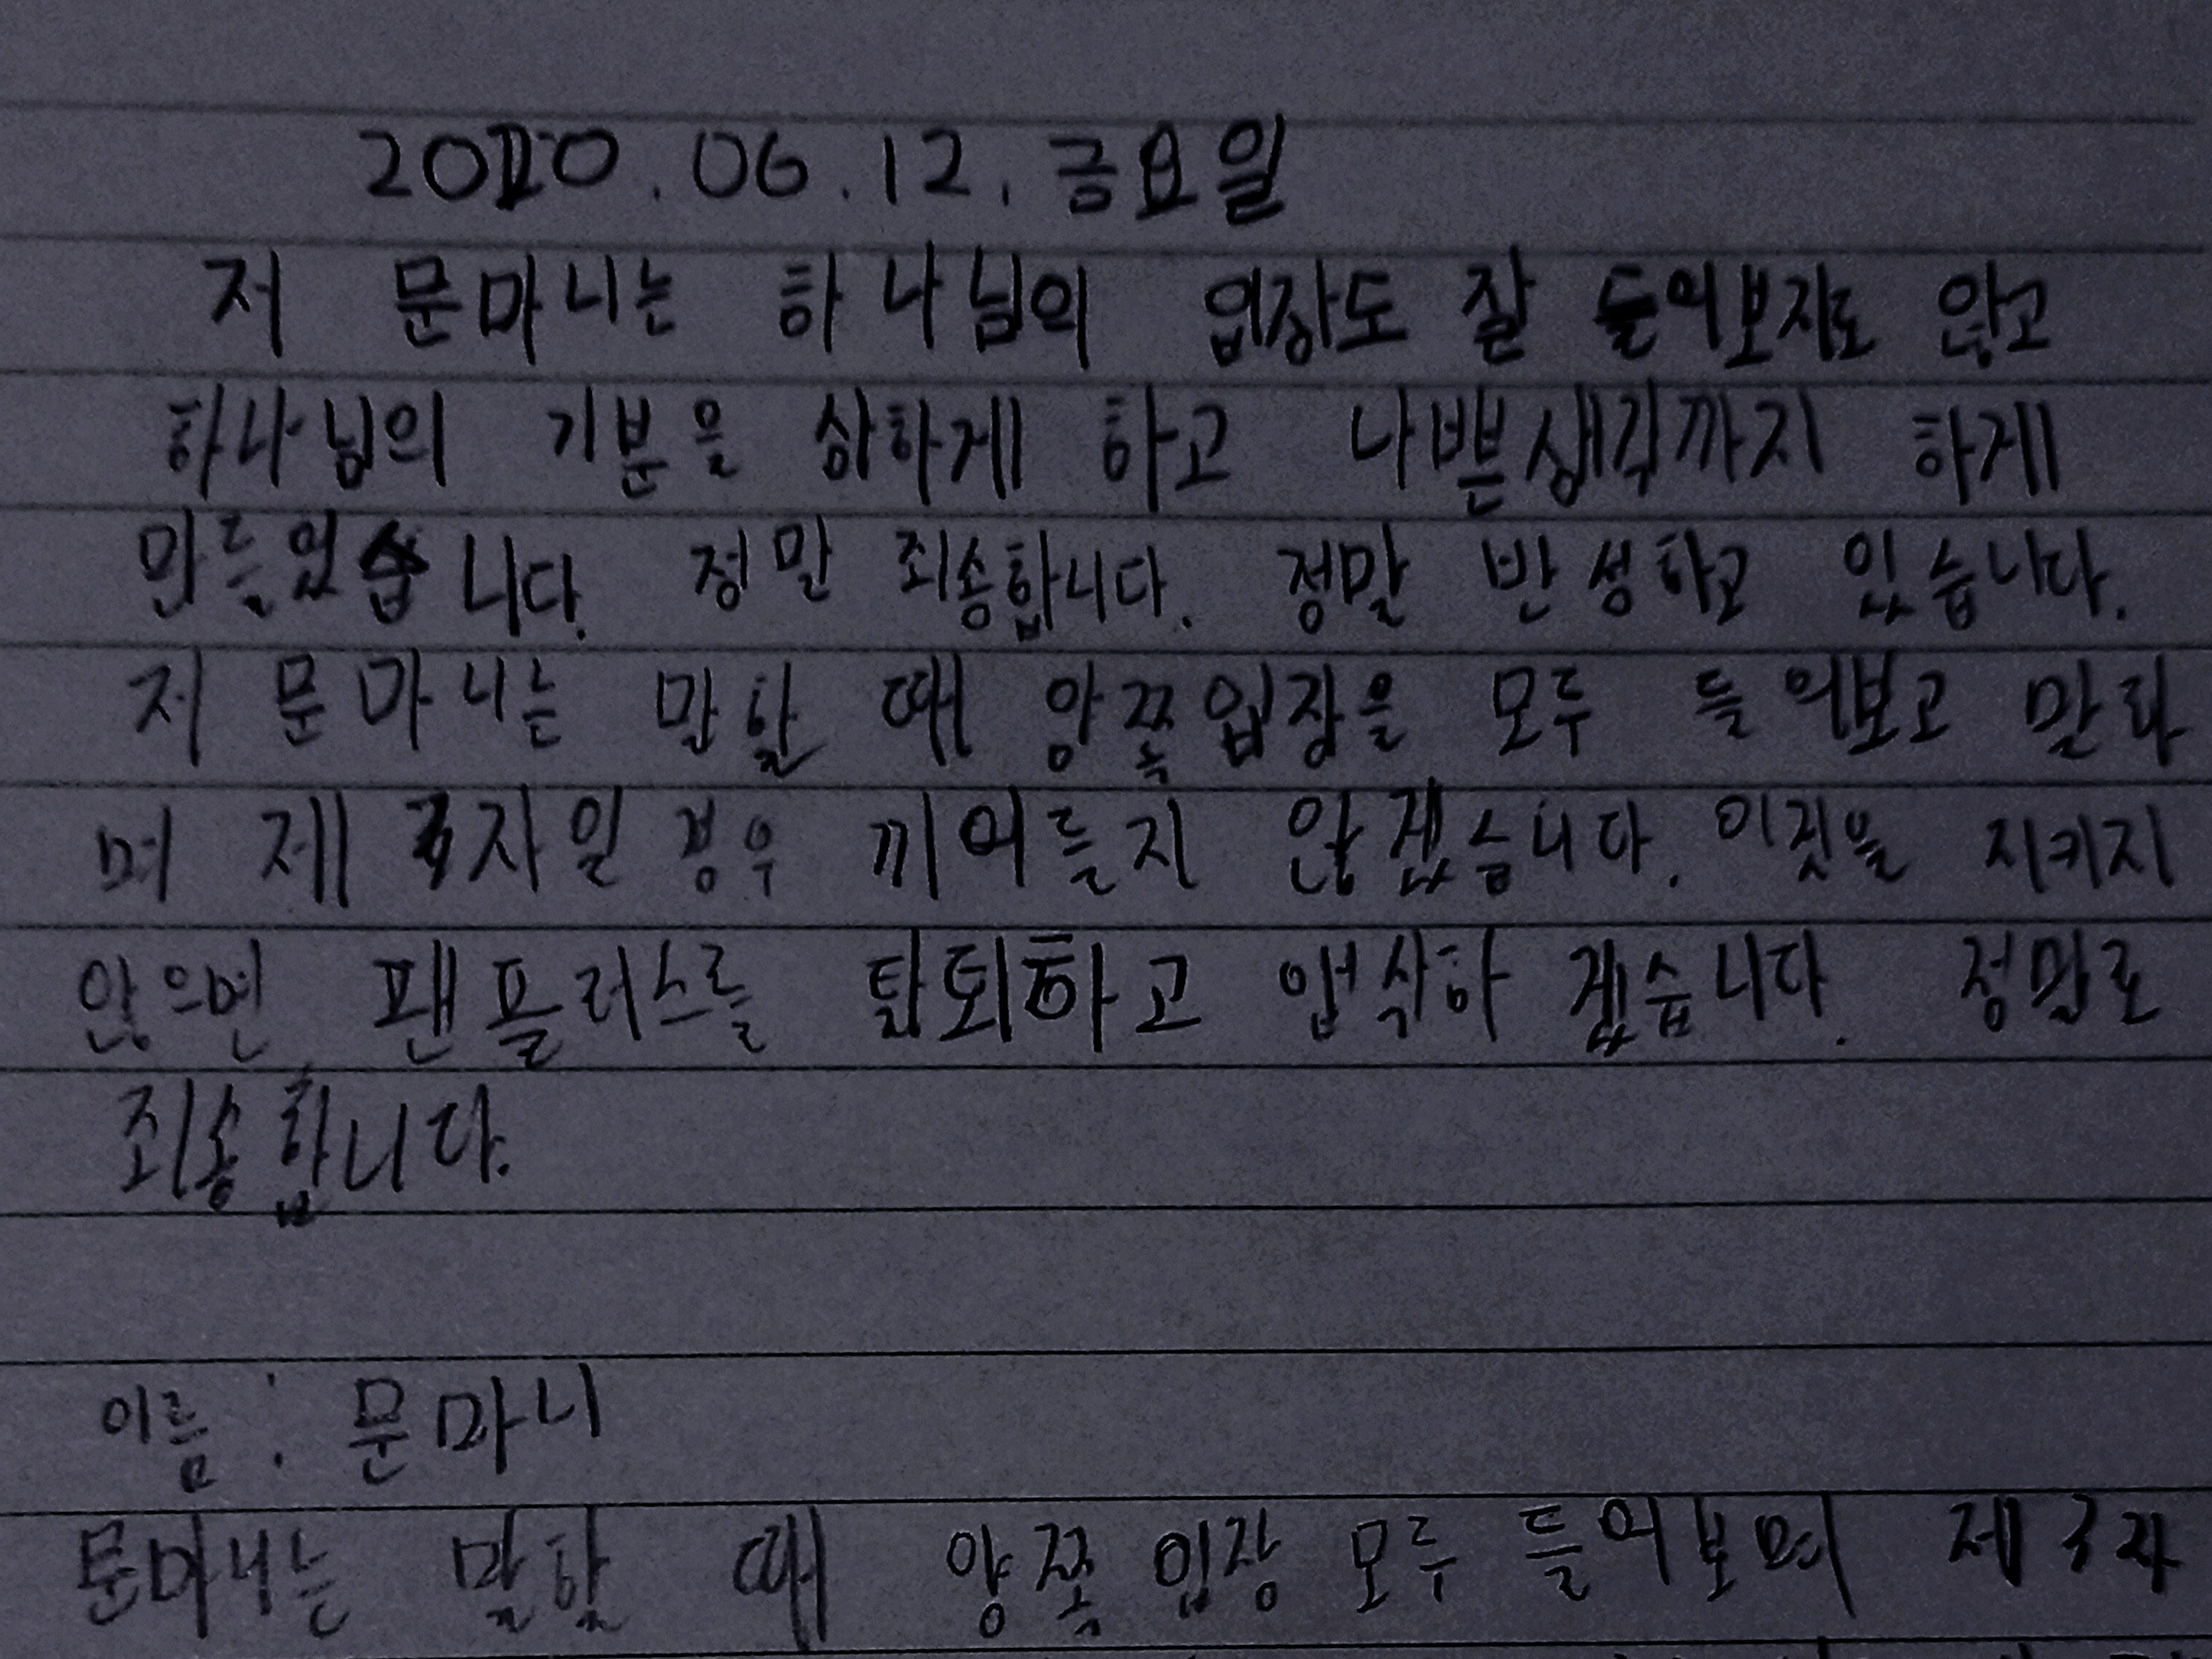 2020.06.12.금요일
저 문마니는 하나님의 입장도 잘 들어보지도 않고
하나님의 기분을 상하게 하고 나쁜생각까지 하게
만들었습니다. 정말 죄송합니다. 정말 반성하고 있습니다.
저 문마니는 말할 때 양쪽입장을 모두 들어보고 말하
며 제 3자일 경우 끼어들지 않겠습니다. 이것을 지키지
않으면 팬플러스를 탈퇴하고 앱삭하겠습니다. 정말로
죄송합니다.
이름 : 문마니
문마니는 말할 때 양쪽 입장 모두 들어보며 제3자